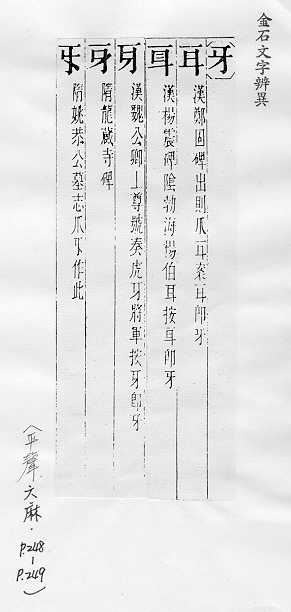 金石文字辨異
〔牙〕
耳 漢鄭固碑出則爪耳案耳即牙
耳 漢楊震碑陰勃海楊伯耳按耳即牙
牙 漢魏公卿上尊號奏虎牙將軍按牙即牙
牙 隋龍藏寺碑
隋姚恭公墓志爪牙作此
〈平聲六麻.
P.248
–
P.249
〉